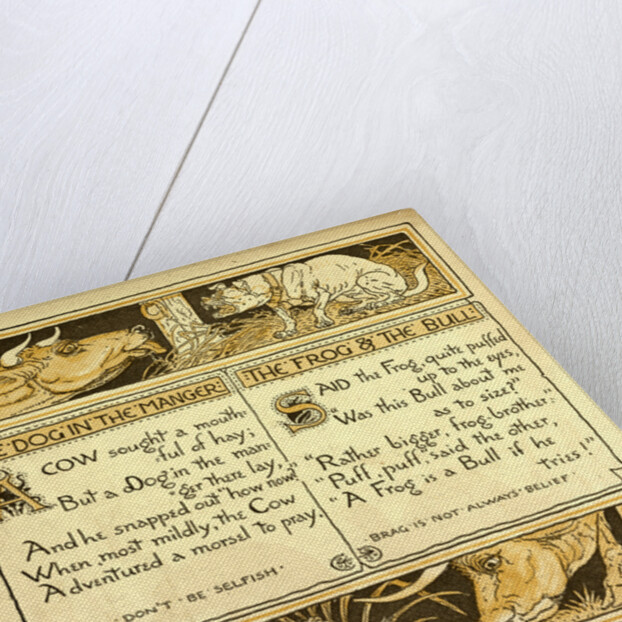 E DOG IN THE MANGER:
A COW sought a mouth-
ful of hay;
But a Dog in the man-
ger there lay,
And he snapped out "how now?"
When most mildly, the Cow
Adventured a morsel to pray.
DON'T · BE SELFISH.
:THE FROG & THE BULL:
SAID the Frog, quite puffed
up to the eyes,
"Was this Bull about me
as to size?"
"Rather bigger, frog brother."
"Puff, puff," said the other,
"A Frog is a Bull if he
tries!"
BRAG · IS · NOT · ALWAYS · BELIEF